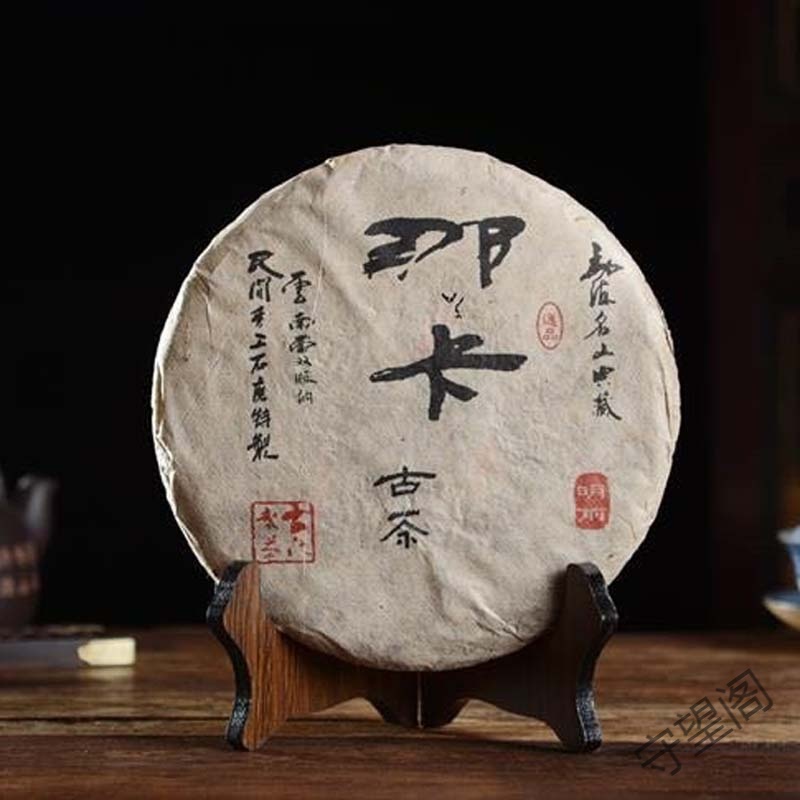 勐海名山典藏
逸品
明前
那卡
古茶
雲南西双版纳
民间手工石磨特製
守望阁